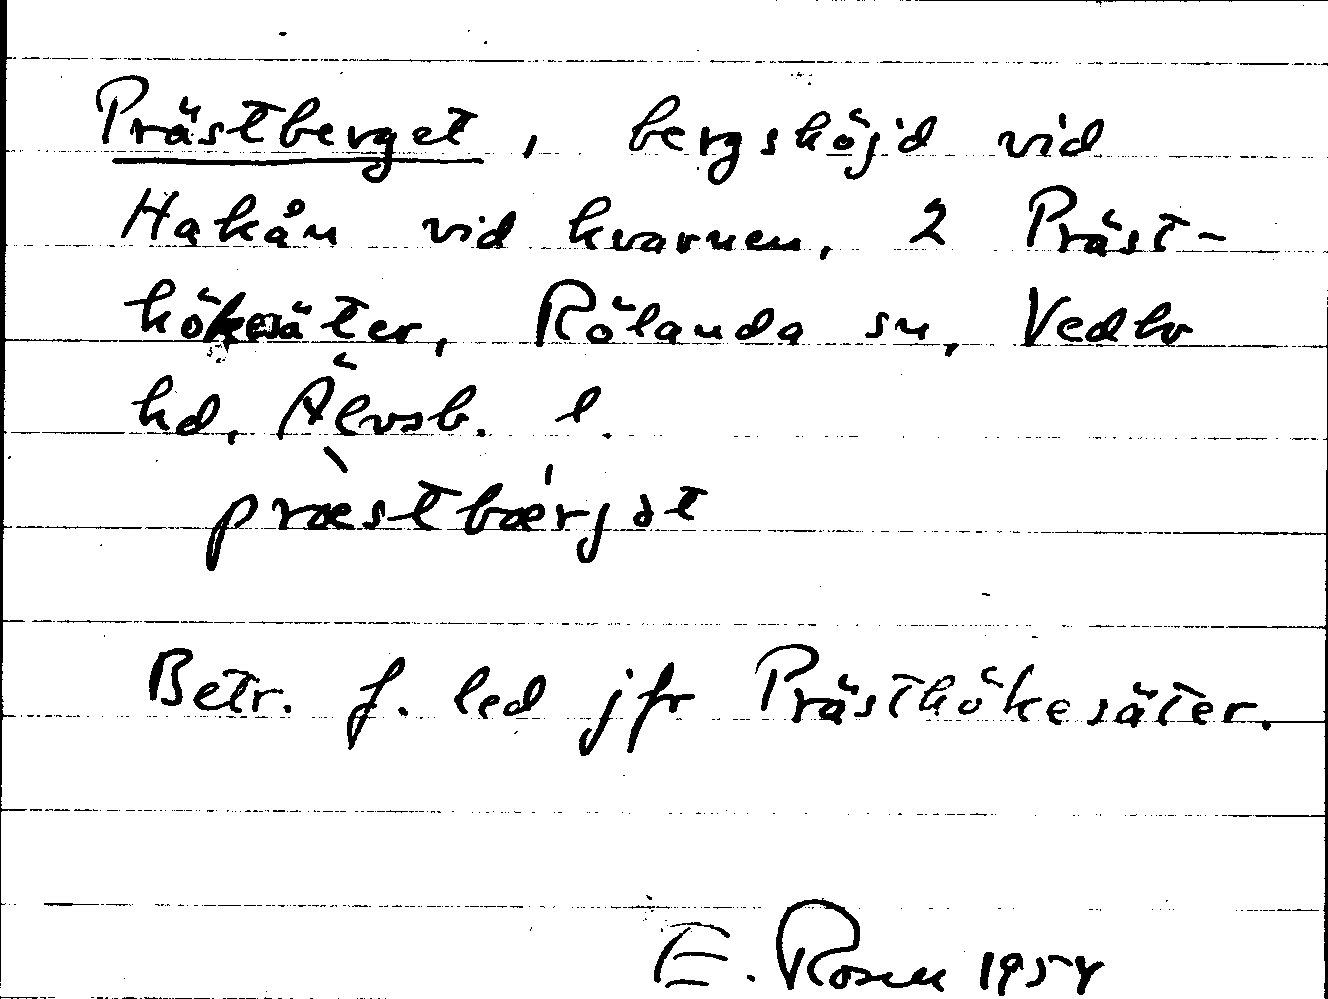 Prästberget, bergshöjd vid
Hakån vid kvarnen, 2 Präst-
hökesäter, Rölanda sn, Vedbo
hd, Älvsb. l.
præ̀stbǽrjət
Betr. f. led jfr Prästhökesäter.
E. Rosen 1954